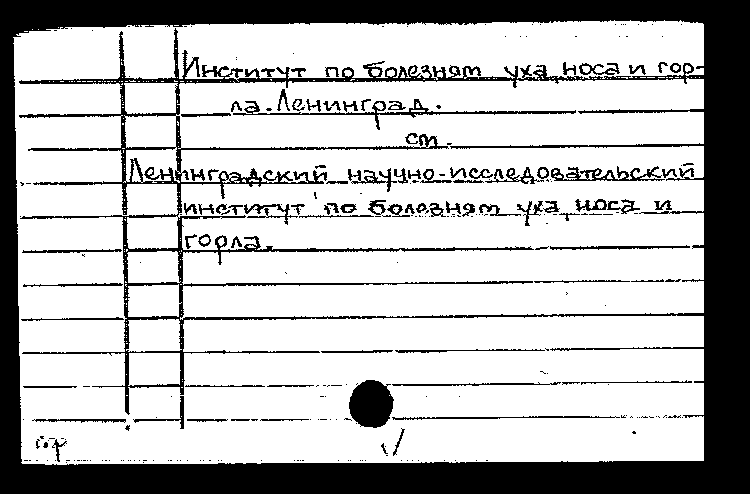 Институт по болезням уха, носа и гор-
ла. Ленинград.
см.
Ленинградский научно-исследовательский
институт по болезням уха, носа и
горла.